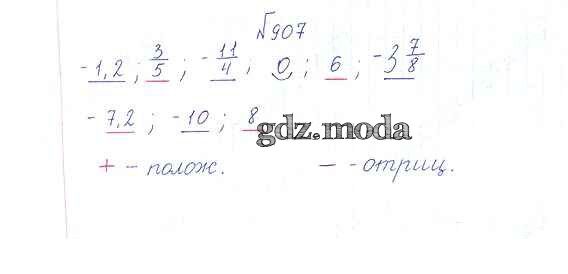 №907
-1,2 ; 3/5 ; -11/4 ; 0 ; 6 ; -3 7/8
-7,2 ; -10 ; 8
gdz.moda
+ - полож. — -отриц.